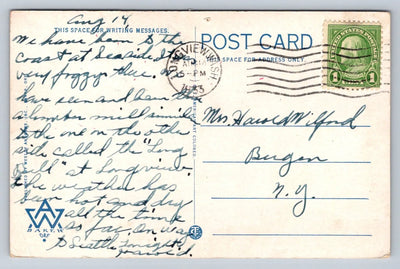 Aug 14
THIS SPACE FOR WRITING MESSAGES.
We have been to the
coast at Seaside. It
very foggy there. We
have seen and been thru
a lumber mill similar
to the one on the other
side called the "Long
Bell" at Longview.
The weather has
been hot and dry
all the time
so far. On way
to Seattle tonight.
Harold.
BAKER
POST CARD
THIS SPACE FOR ADDRESS ONLY.
LONGVIEW, WASH.
5 - PM
1933
1 1
Mrs Harold Wilford
Bergen
N.Y.